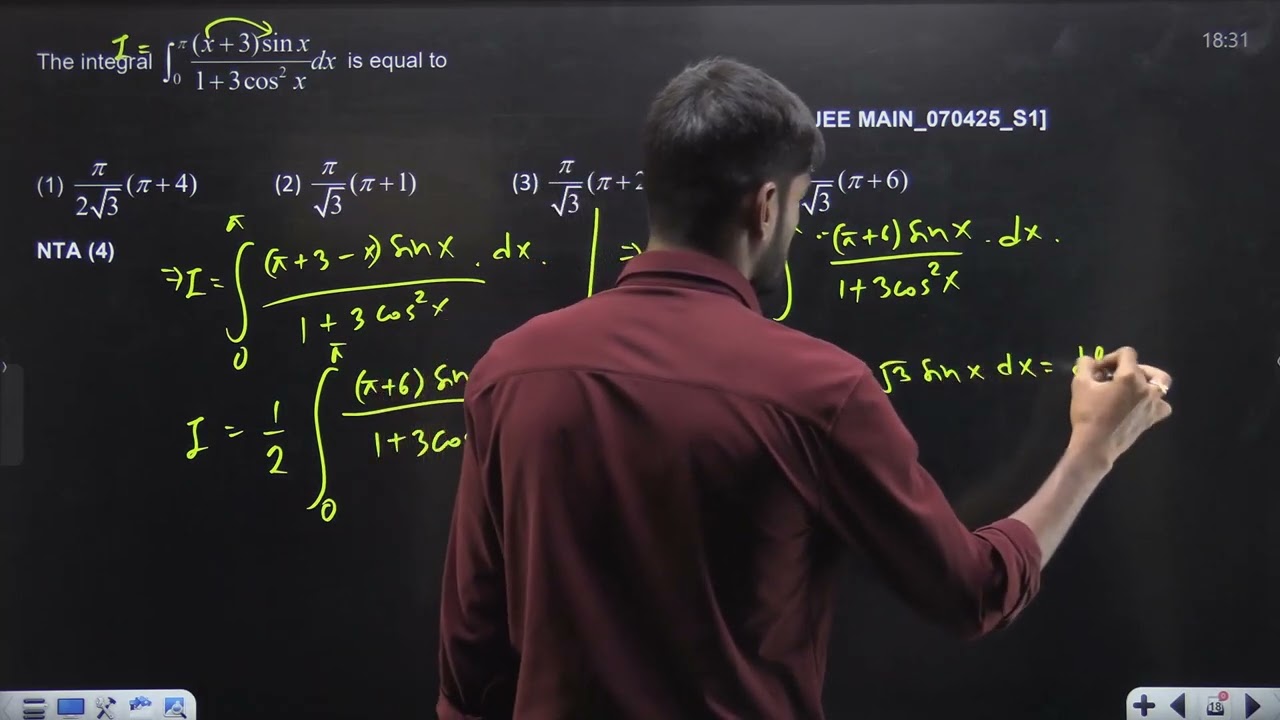 18:31
I =
The integral ∫₀^π (x + 3) sin x / (1 + 3 cos² x) dx is equal to
JEE MAIN_070425_S1]
(1) π/(2√3) (π + 4) (2) π/√3 (π + 1) (3) π/√3 (π + 2 √3 (π + 6)
NTA (4)
⇒ I = ∫₀^π (π + 3 − x) sin x / (1 + 3 cos² x) . dx . ⇒ (π + 6) sin x / (1 + 3 cos² x) . dx .
√3 sin x dx =
I = 1/2 ∫₀^π (π + 6) sin / 1 + 3 cos
18